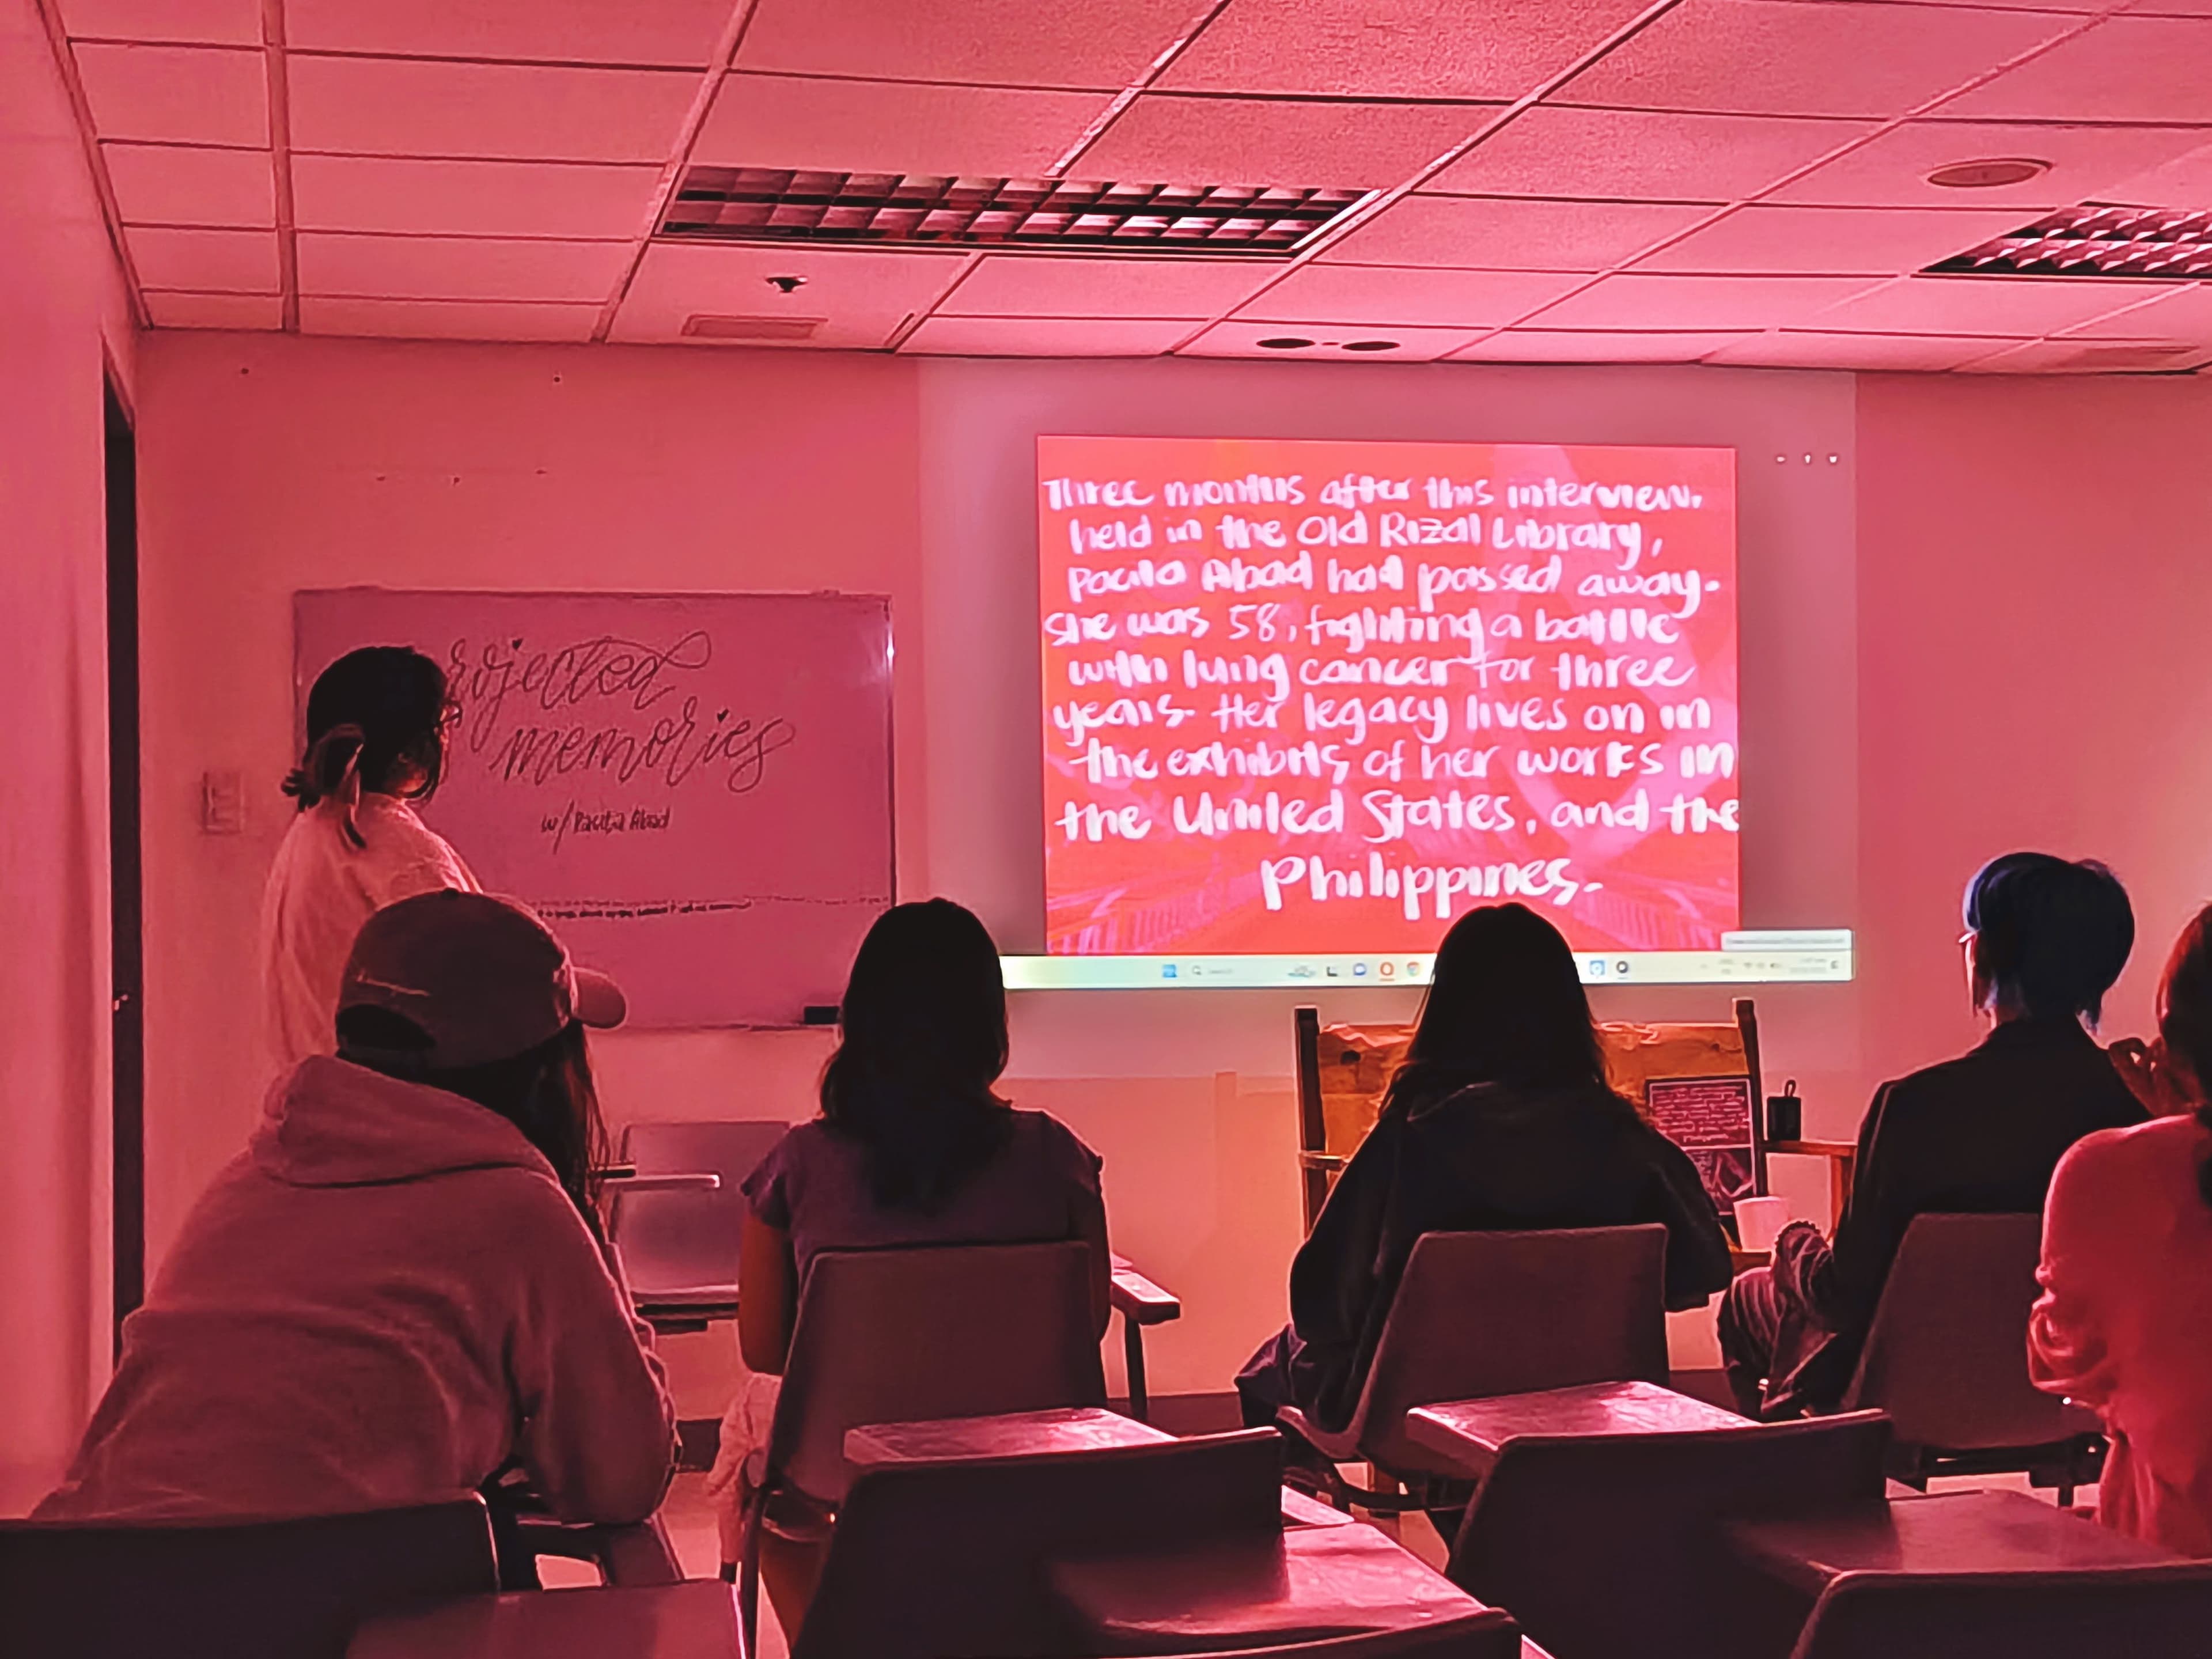 rojected
memories
w/ Pacita Abad
Three months after this interview,
held in the Old Rizal Library,
Pacita Abad had passed away.
She was 58, fighting a battle
with lung cancer for three
years. Her legacy lives on in
the exhibits of her works in
the United States, and the
Philippines.
Search